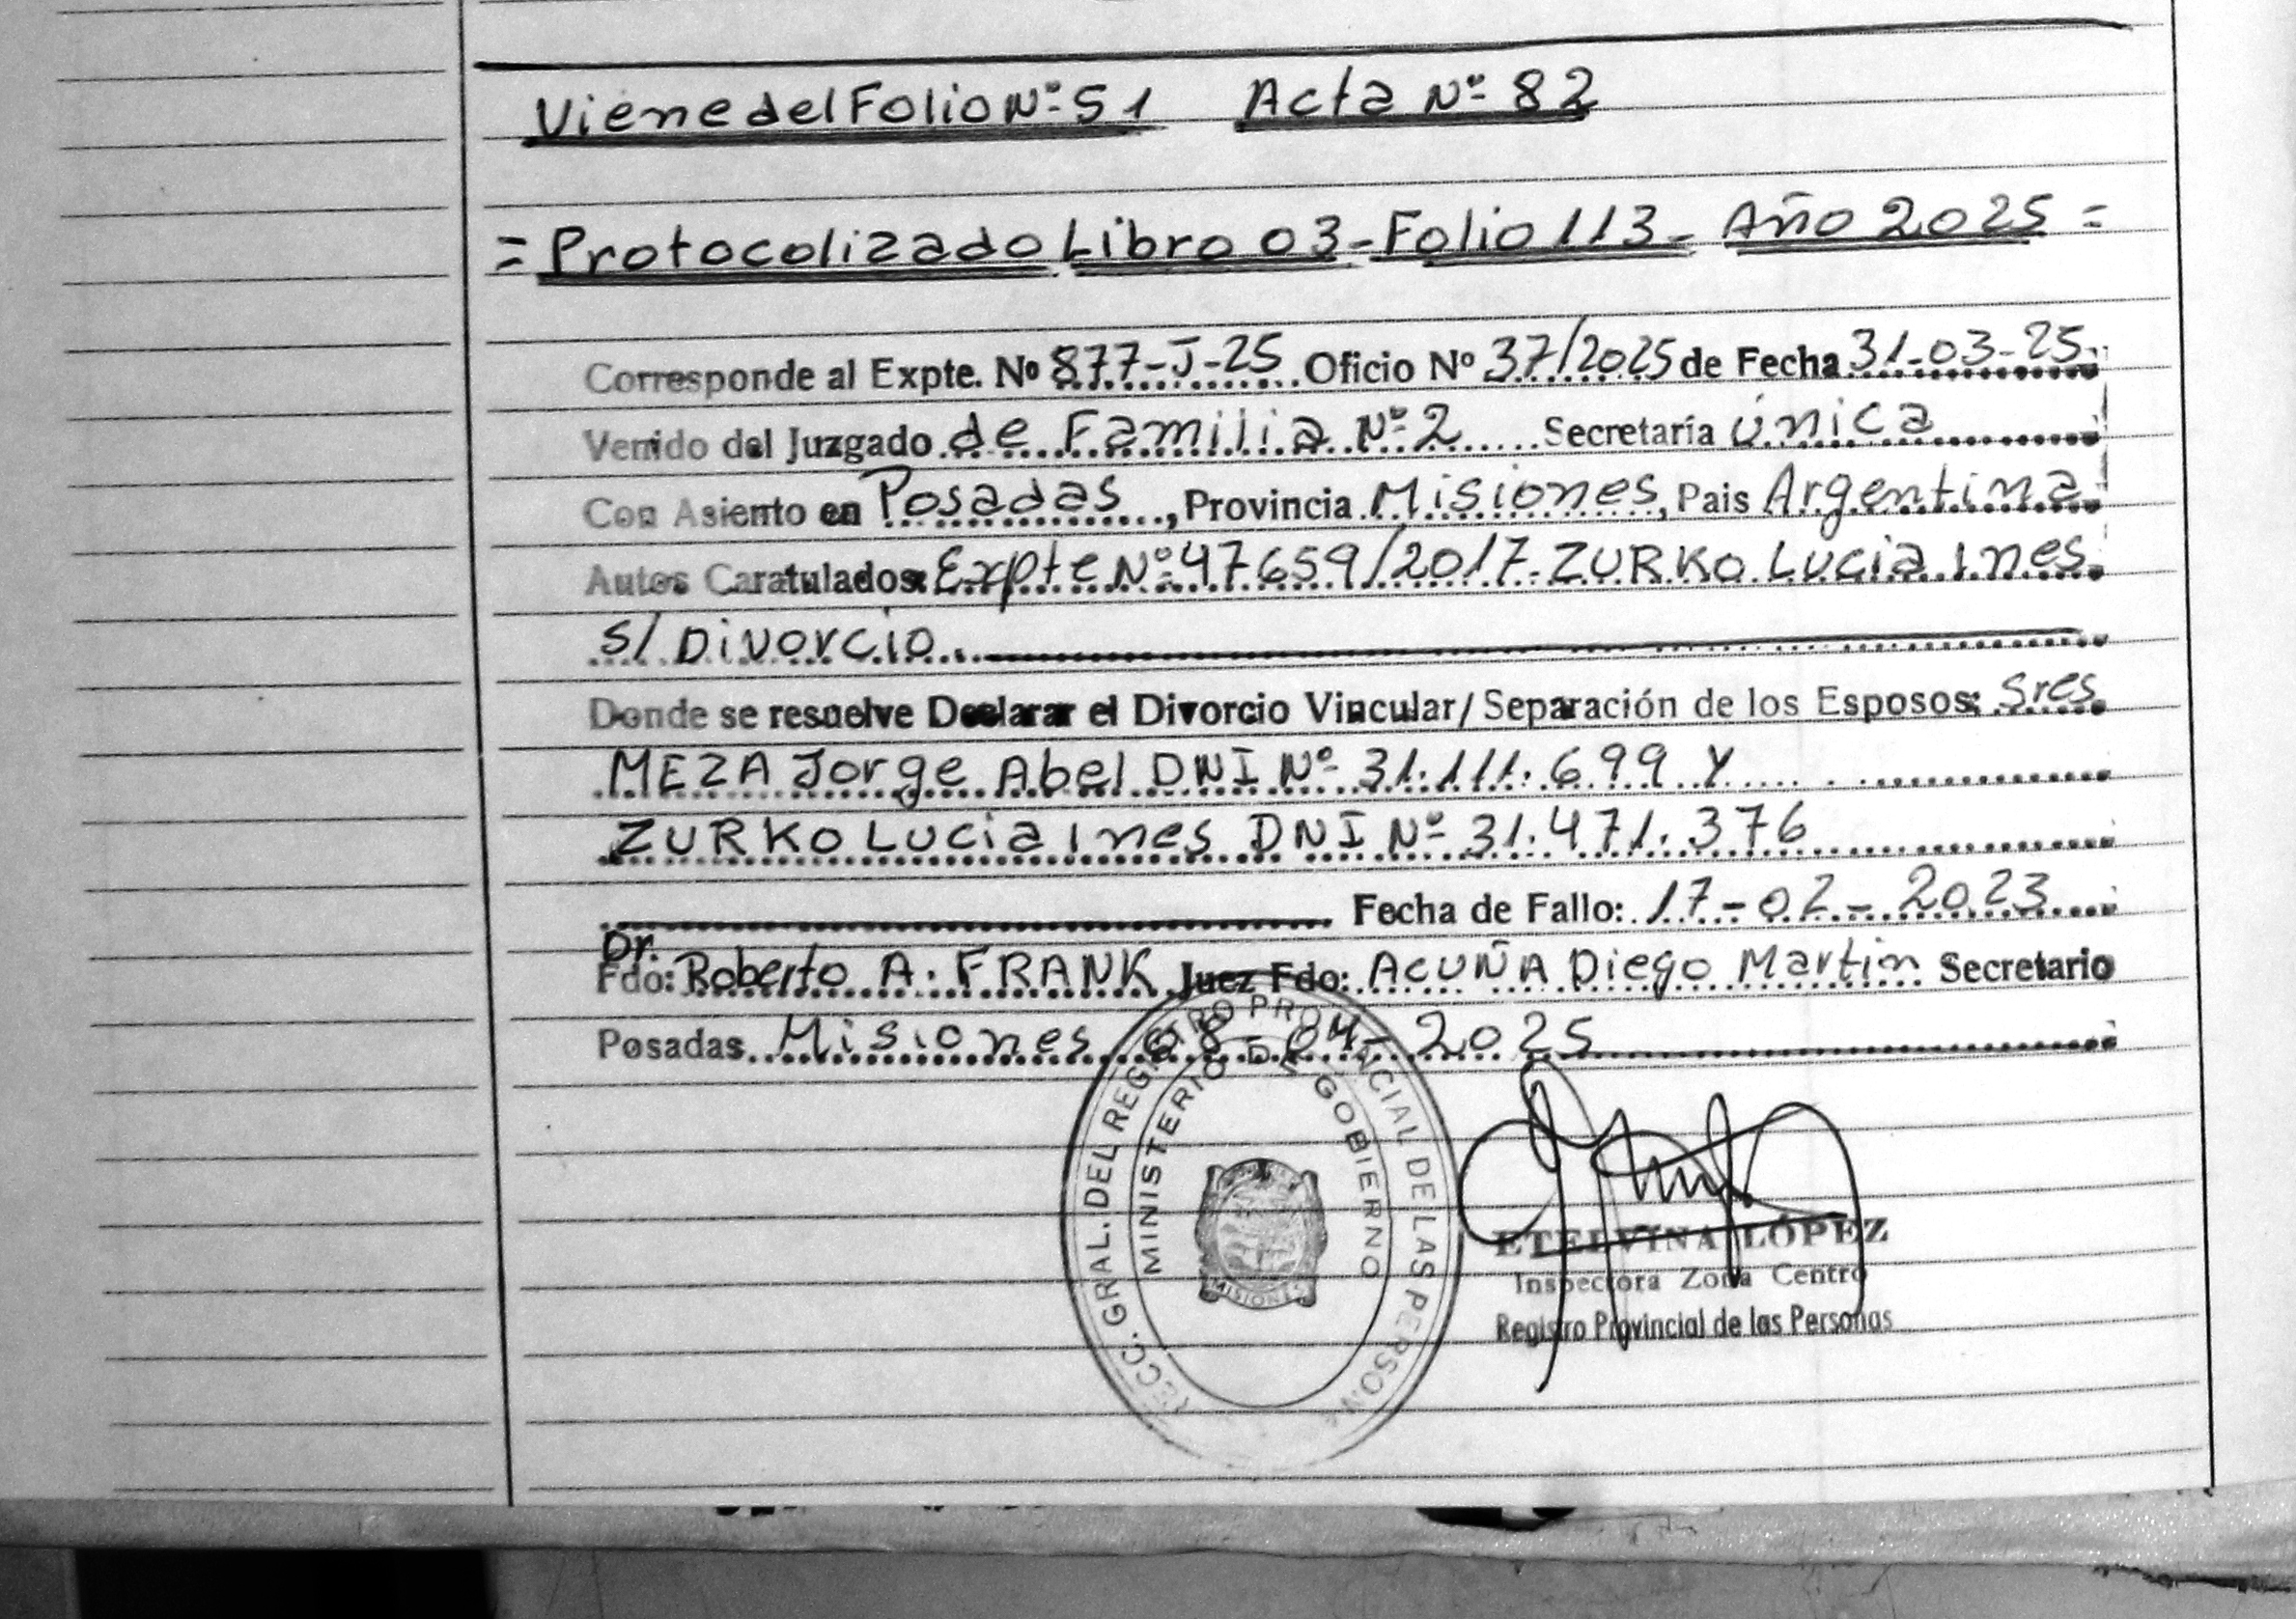 Viene del Folio Nº 51 Acta Nº 82
= Protocolizado Libro 03 - Folio 113 - Año 2025 =
Corresponde al Expte. Nº 877-J-25 Oficio Nº 37/2025 de Fecha 31-03-25
Venido del Juzgado de Familia Nº 2 Secretaría única
Con Asiento en Posadas, Provincia Misiones, Pais Argentina
Autos Caratulados: Expte Nº 47659/2017-ZURKO Lucia Ines
s/ Divorcio.
Donde se resuelve Declarar el Divorcio Vincular/ Separación de los Esposos: Sres
MEZA Jorge Abel DNI Nº 31.111.699 Y
ZURKO Lucia Ines DNI Nº 31.471.376
Fecha de Fallo: 17-02-2023
Dr.
Fdo: Roberto A. FRANK Juez Fdo: ACUÑA Diego Martin Secretario
Posadas Misiones 08-04-2025
RECC. GRAL. DEL REGISTRO PROVINCIAL DE LAS PERSONA
MINISTERIO DE GOBIERNO
MISIONES
ETELVINA LÓPEZ
Inspectora Zona Centro
Registro Provincial de las Personas